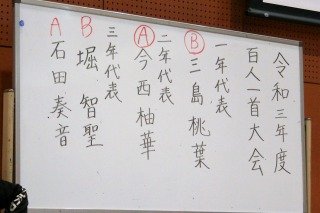 令和三年度
百人一首大会
一年代表
B 三島桃葉
二年代表
A 今西柚華
三年代表
B 堀智聖
A 石田奏音